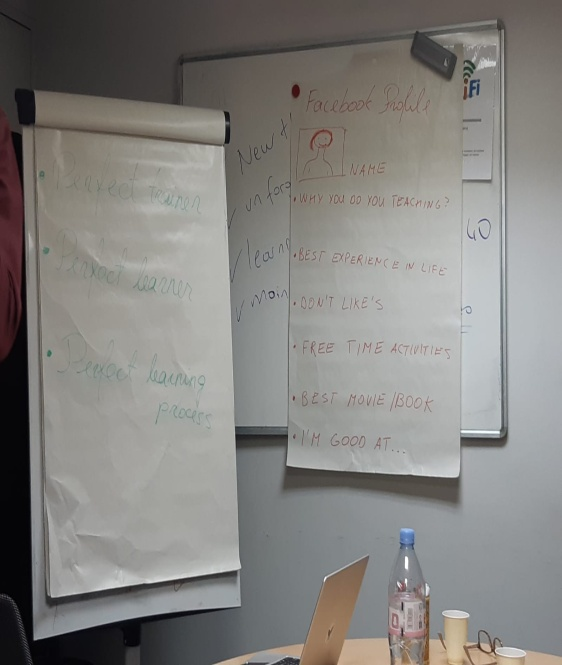 Perfect trainer
Perfect learner
Perfect learning
process
New
learn
main
Facebook Profile
NAME
• WHY YOU DO YOU TEACHING?
• BEST EXPERIENCE IN LIFE
• DON'T LIKE'S
• FREE TIME ACTIVITIES
• BEST MOVIE/BOOK
• I'M GOOD AT...
iFi
40